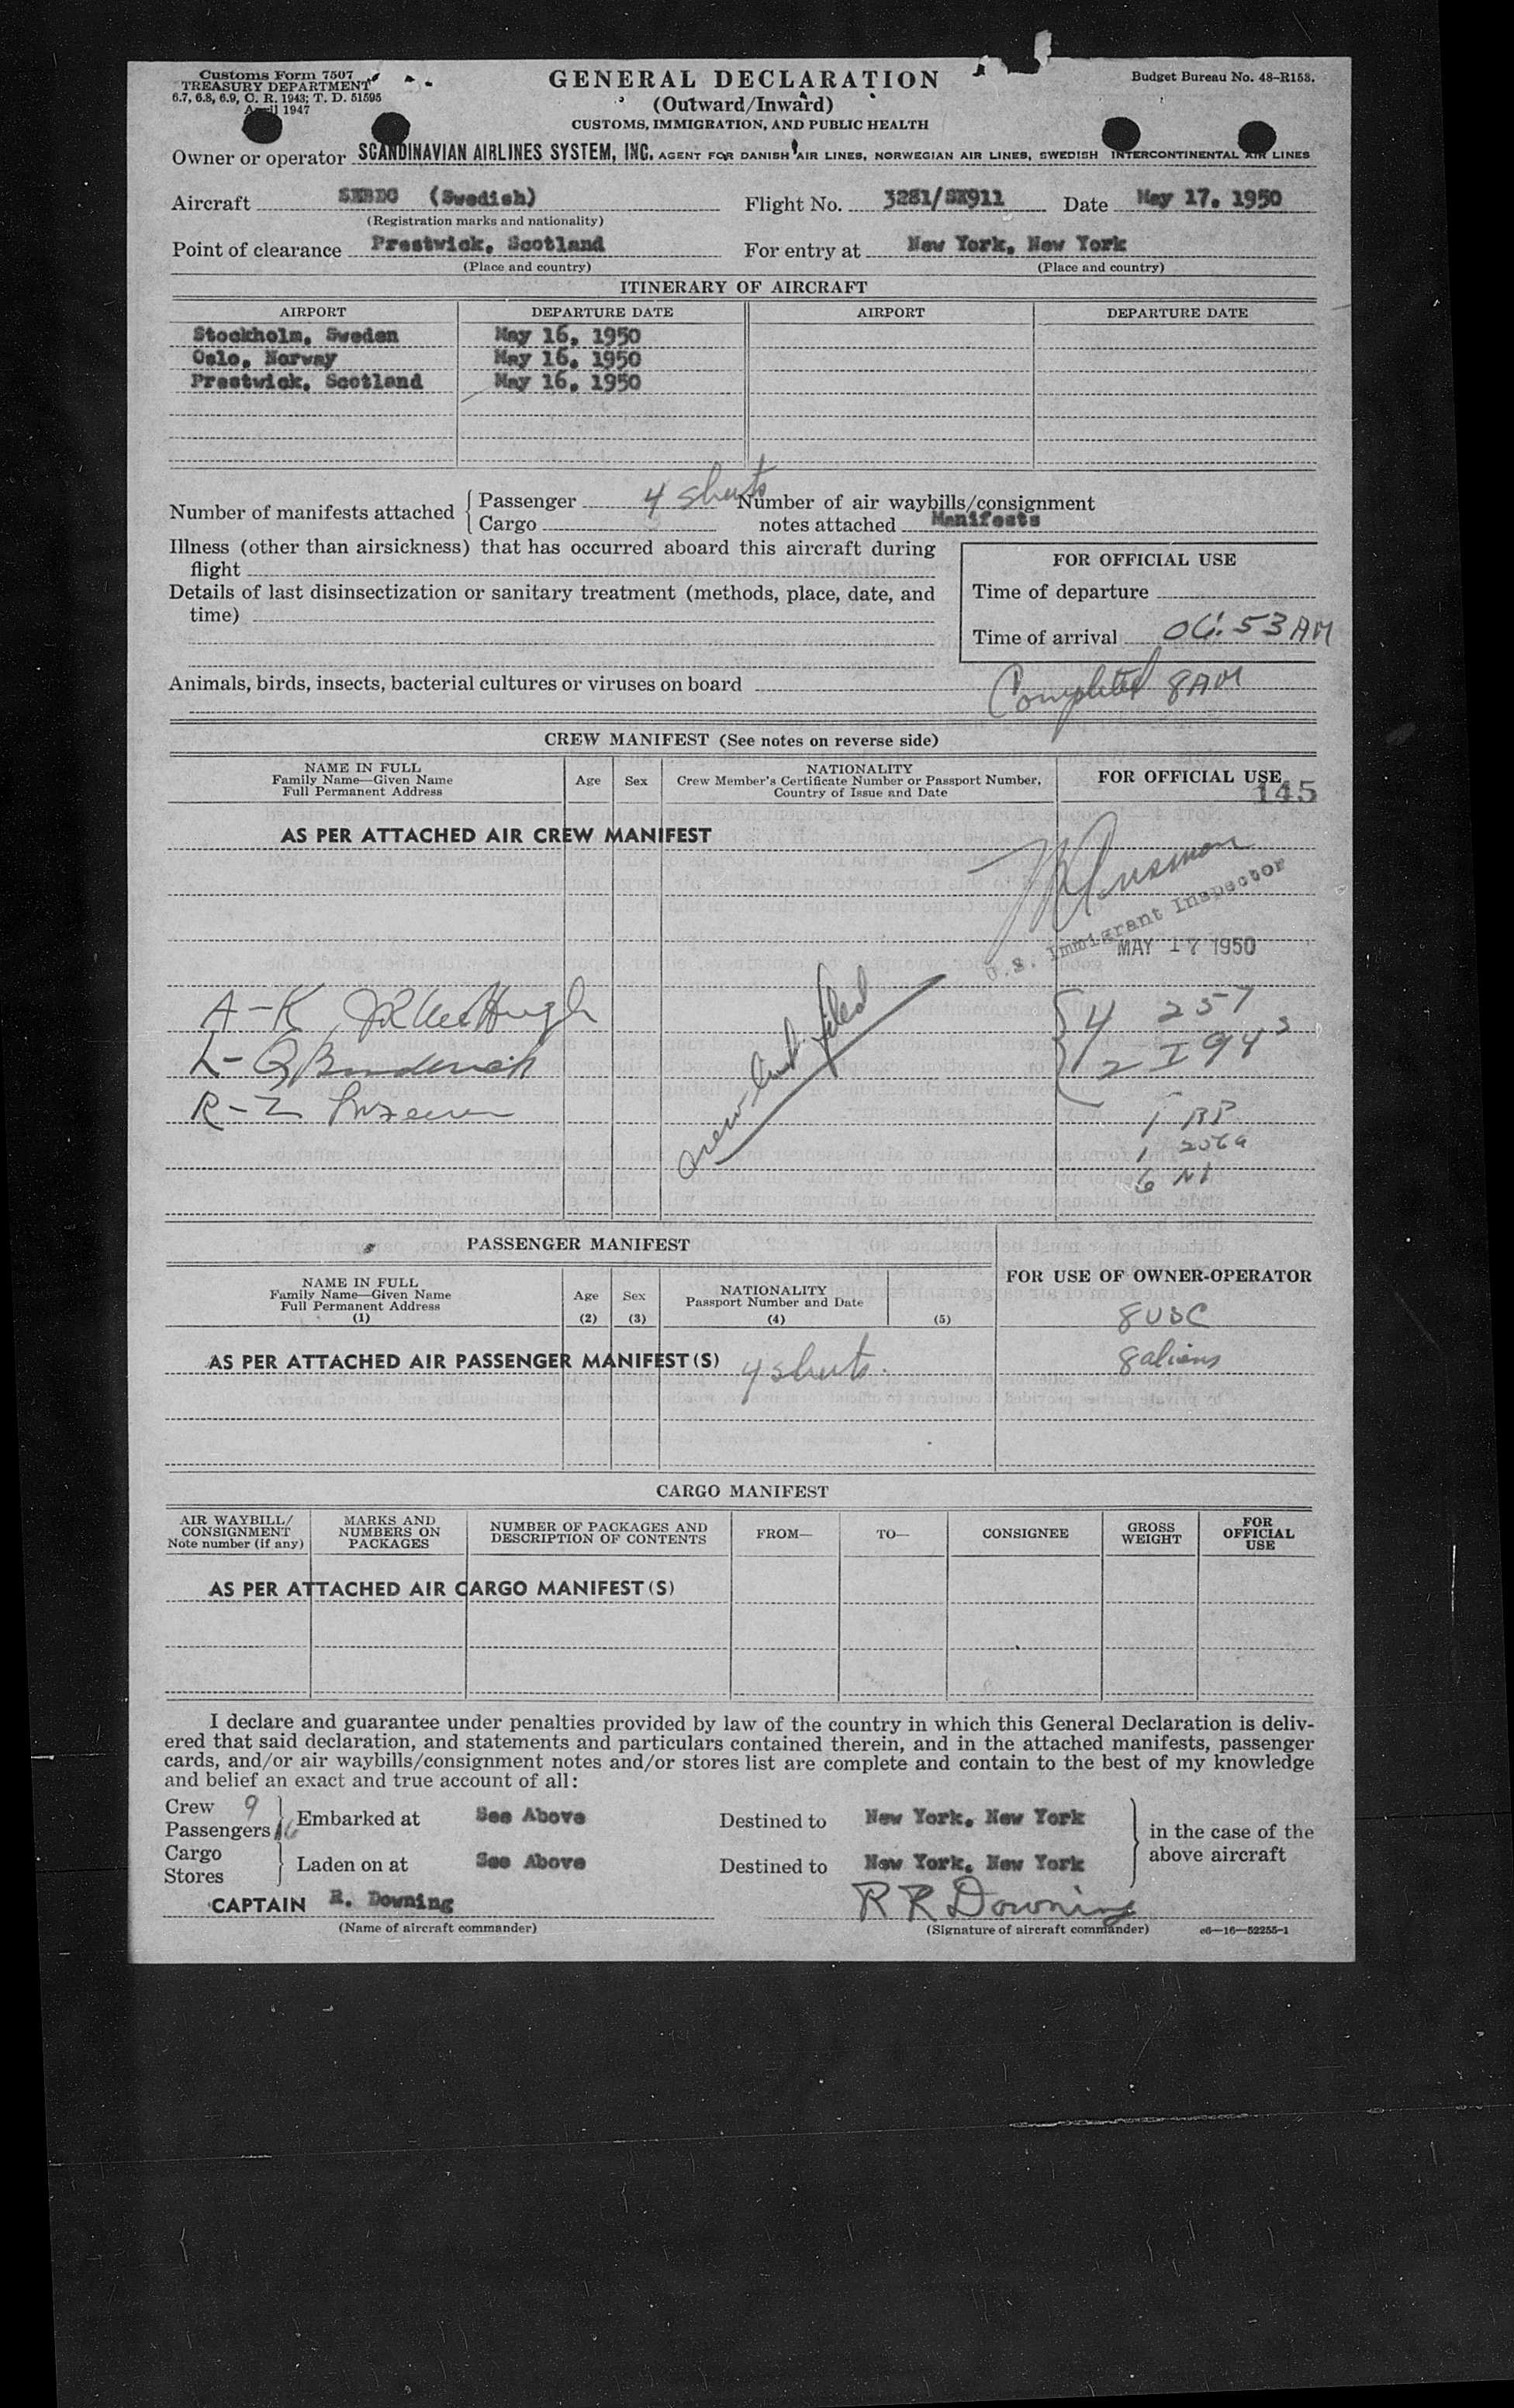 Customs Form 7507
TREASURY DEPARTMENT
6.7, 6.8, 6.9, C. R. 1943; T. D. 51595
April 1947
GENERAL DECLARATION
(Outward/Inward)
CUSTOMS, IMMIGRATION, AND PUBLIC HEALTH
Budget Bureau No. 48-R158.
Owner or operator SCANDINAVIAN AIRLINES SYSTEM, INC. AGENT FOR DANISH AIR LINES, NORWEGIAN AIR LINES, SWEDISH INTERCONTINENTAL AIR LINES
Aircraft (Swedish) Flight No. 3281/SK911 Date May 17, 1950
(Registration marks and nationality)
Point of clearance Prestwick, Scotland For entry at New York, New York
(Place and country) (Place and country)
ITINERARY OF AIRCRAFT
AIRPORT DEPARTURE DATE AIRPORT DEPARTURE DATE
Stockholm, Sweden May 16, 1950
Oslo, Norway May 16, 1950
Prestwick, Scotland May 16, 1950
Number of manifests attached { Passenger 4 sheets Number of air waybills/consignment
Cargo notes attached Manifests
Illness (other than airsickness) that has occurred aboard this aircraft during
flight
Details of last disinsectization or sanitary treatment (methods, place, date, and
time)
FOR OFFICIAL USE
Time of departure
Time of arrival 06:53 AM
Animals, birds, insects, bacterial cultures or viruses on board
Completed 8AM
CREW MANIFEST (See notes on reverse side)
NAME IN FULL
Family Name—Given Name
Full Permanent Address
Age
Sex
NATIONALITY
Crew Member's Certificate Number or Passport Number,
Country of Issue and Date
FOR OFFICIAL USE
145
AS PER ATTACHED AIR CREW MANIFEST
U.S. Immigrant Inspector
MAY 17 1950
A-K
L-Q
R-Z
crew list filed
4 257
2 I 94
1 RP
1
6 NI
PASSENGER MANIFEST
NAME IN FULL
Family Name—Given Name
Full Permanent Address
(1)
Age
(2)
Sex
(3)
NATIONALITY
Passport Number and Date
(4)
(5)
FOR USE OF OWNER-OPERATOR
8 USC
8 aliens
AS PER ATTACHED AIR PASSENGER MANIFEST(S) 4 sheets.
CARGO MANIFEST
AIR WAYBILL/
CONSIGNMENT
Note number (if any)
MARKS AND
NUMBERS ON
PACKAGES
NUMBER OF PACKAGES AND
DESCRIPTION OF CONTENTS
FROM—
TO—
CONSIGNEE
GROSS
WEIGHT
FOR
OFFICIAL
USE
AS PER ATTACHED AIR CARGO MANIFEST(S)
I declare and guarantee under penalties provided by law of the country in which this General Declaration is deliv-
ered that said declaration, and statements and particulars contained therein, and in the attached manifests, passenger
cards, and/or air waybills/consignment notes and/or stores list are complete and contain to the best of my knowledge
and belief an exact and true account of all:
Crew 9
Passengers 16 } Embarked at See Above Destined to New York, New York
Cargo
Stores } Laden on at See Above Destined to New York, New York
in the case of the
above aircraft
CAPTAIN R. Downing R R Downing
(Name of aircraft commander) (Signature of aircraft commander) c6—16—52255-1